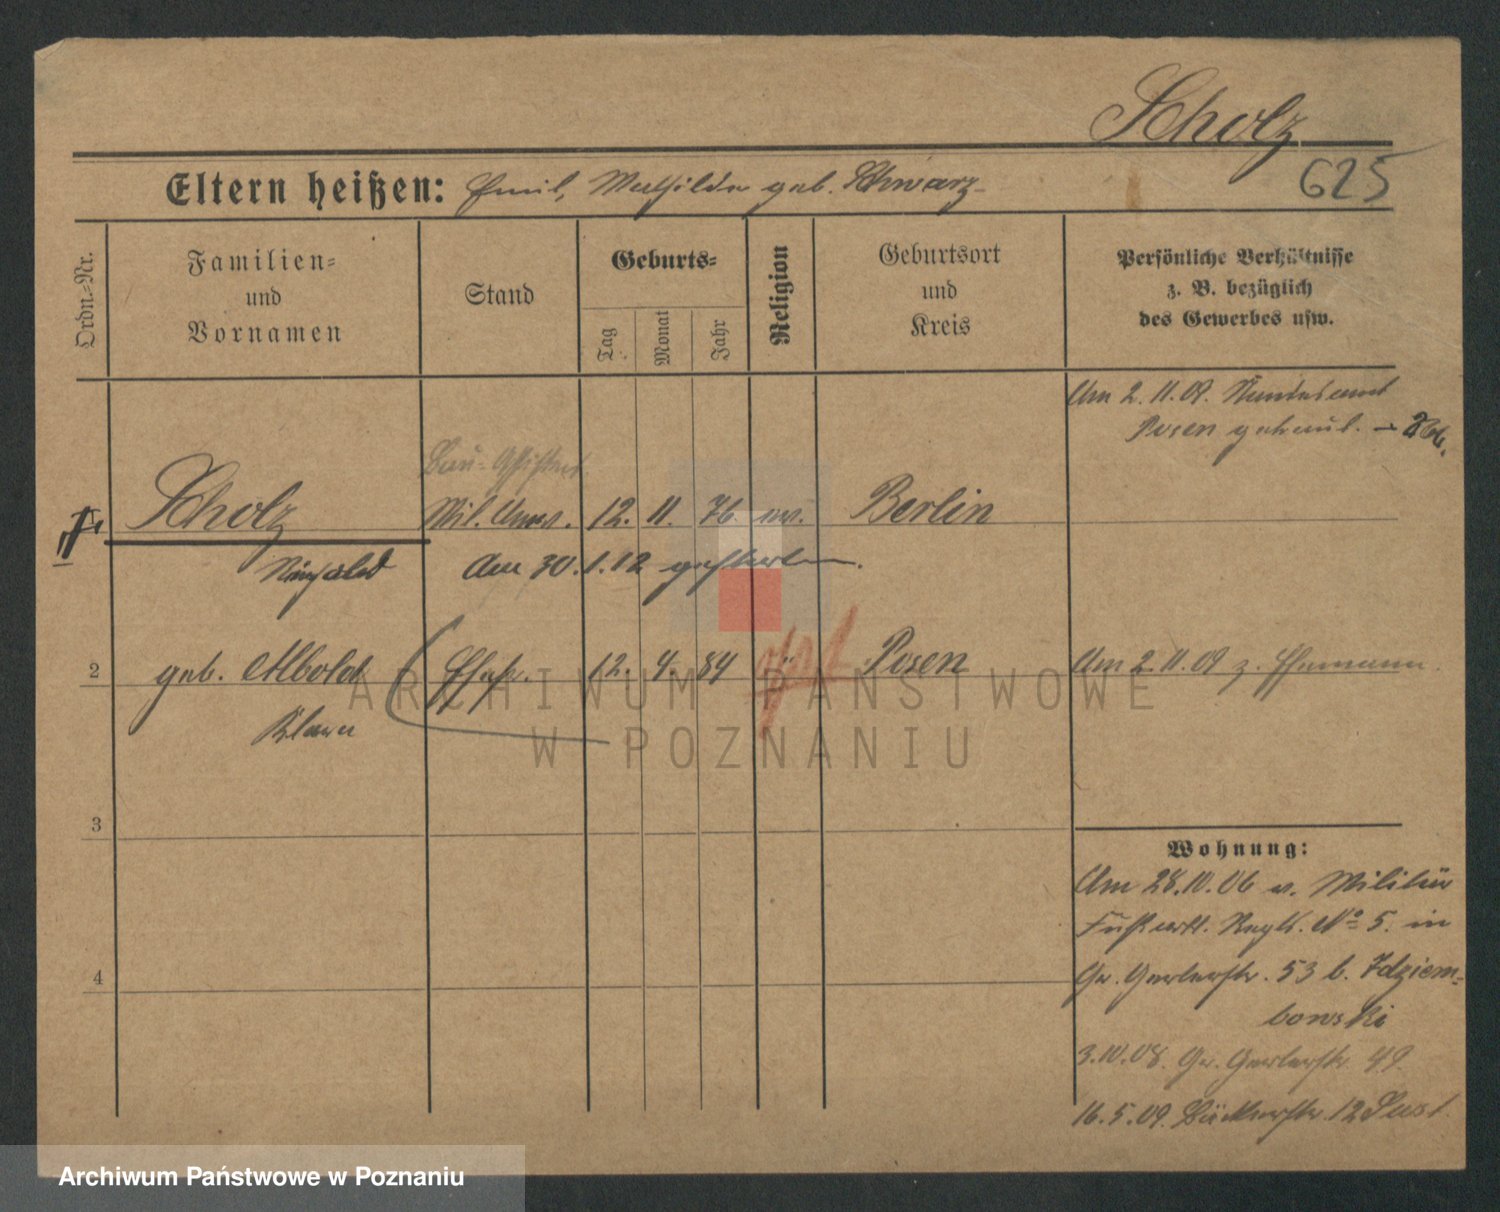 Scholz
625
Eltern heißen: Emil, Mathilde geb. Schwarz
Ordn.=Nr.
Familien=
und
Vornamen
Stand
Geburts=
Tag
Monat
Jahr
Religion
Geburtsort
und
Kreis
Persönliche Verhältnisse
z. B. bezüglich
des Gewerbes usw.
Am 2. 11. 09. Standesamt
Posen getraut.
Bau-Assistent
Scholz Mil. Anw. 12. 11. 76. ev. Berlin
Am 30. 1. 12 gestorben.
2 geb. Albold Ehefr. 12. 4. 84 Posen Am 2. 11. 09 z. Ehemann.
Klara
3
4
Wohnung:
Am 28.10.06 v. Militär
Fußartl. Regt. No 5. in
Gr. Gerberstr. 53 b. Idziem-
bowski
3.10.08. Gr. Gerberstr. 49.
16.5.09. Bäckerstr. 12
ARCHIWUM PAŃSTWOWE
W POZNANIU
Archiwum Państwowe w Poznaniu